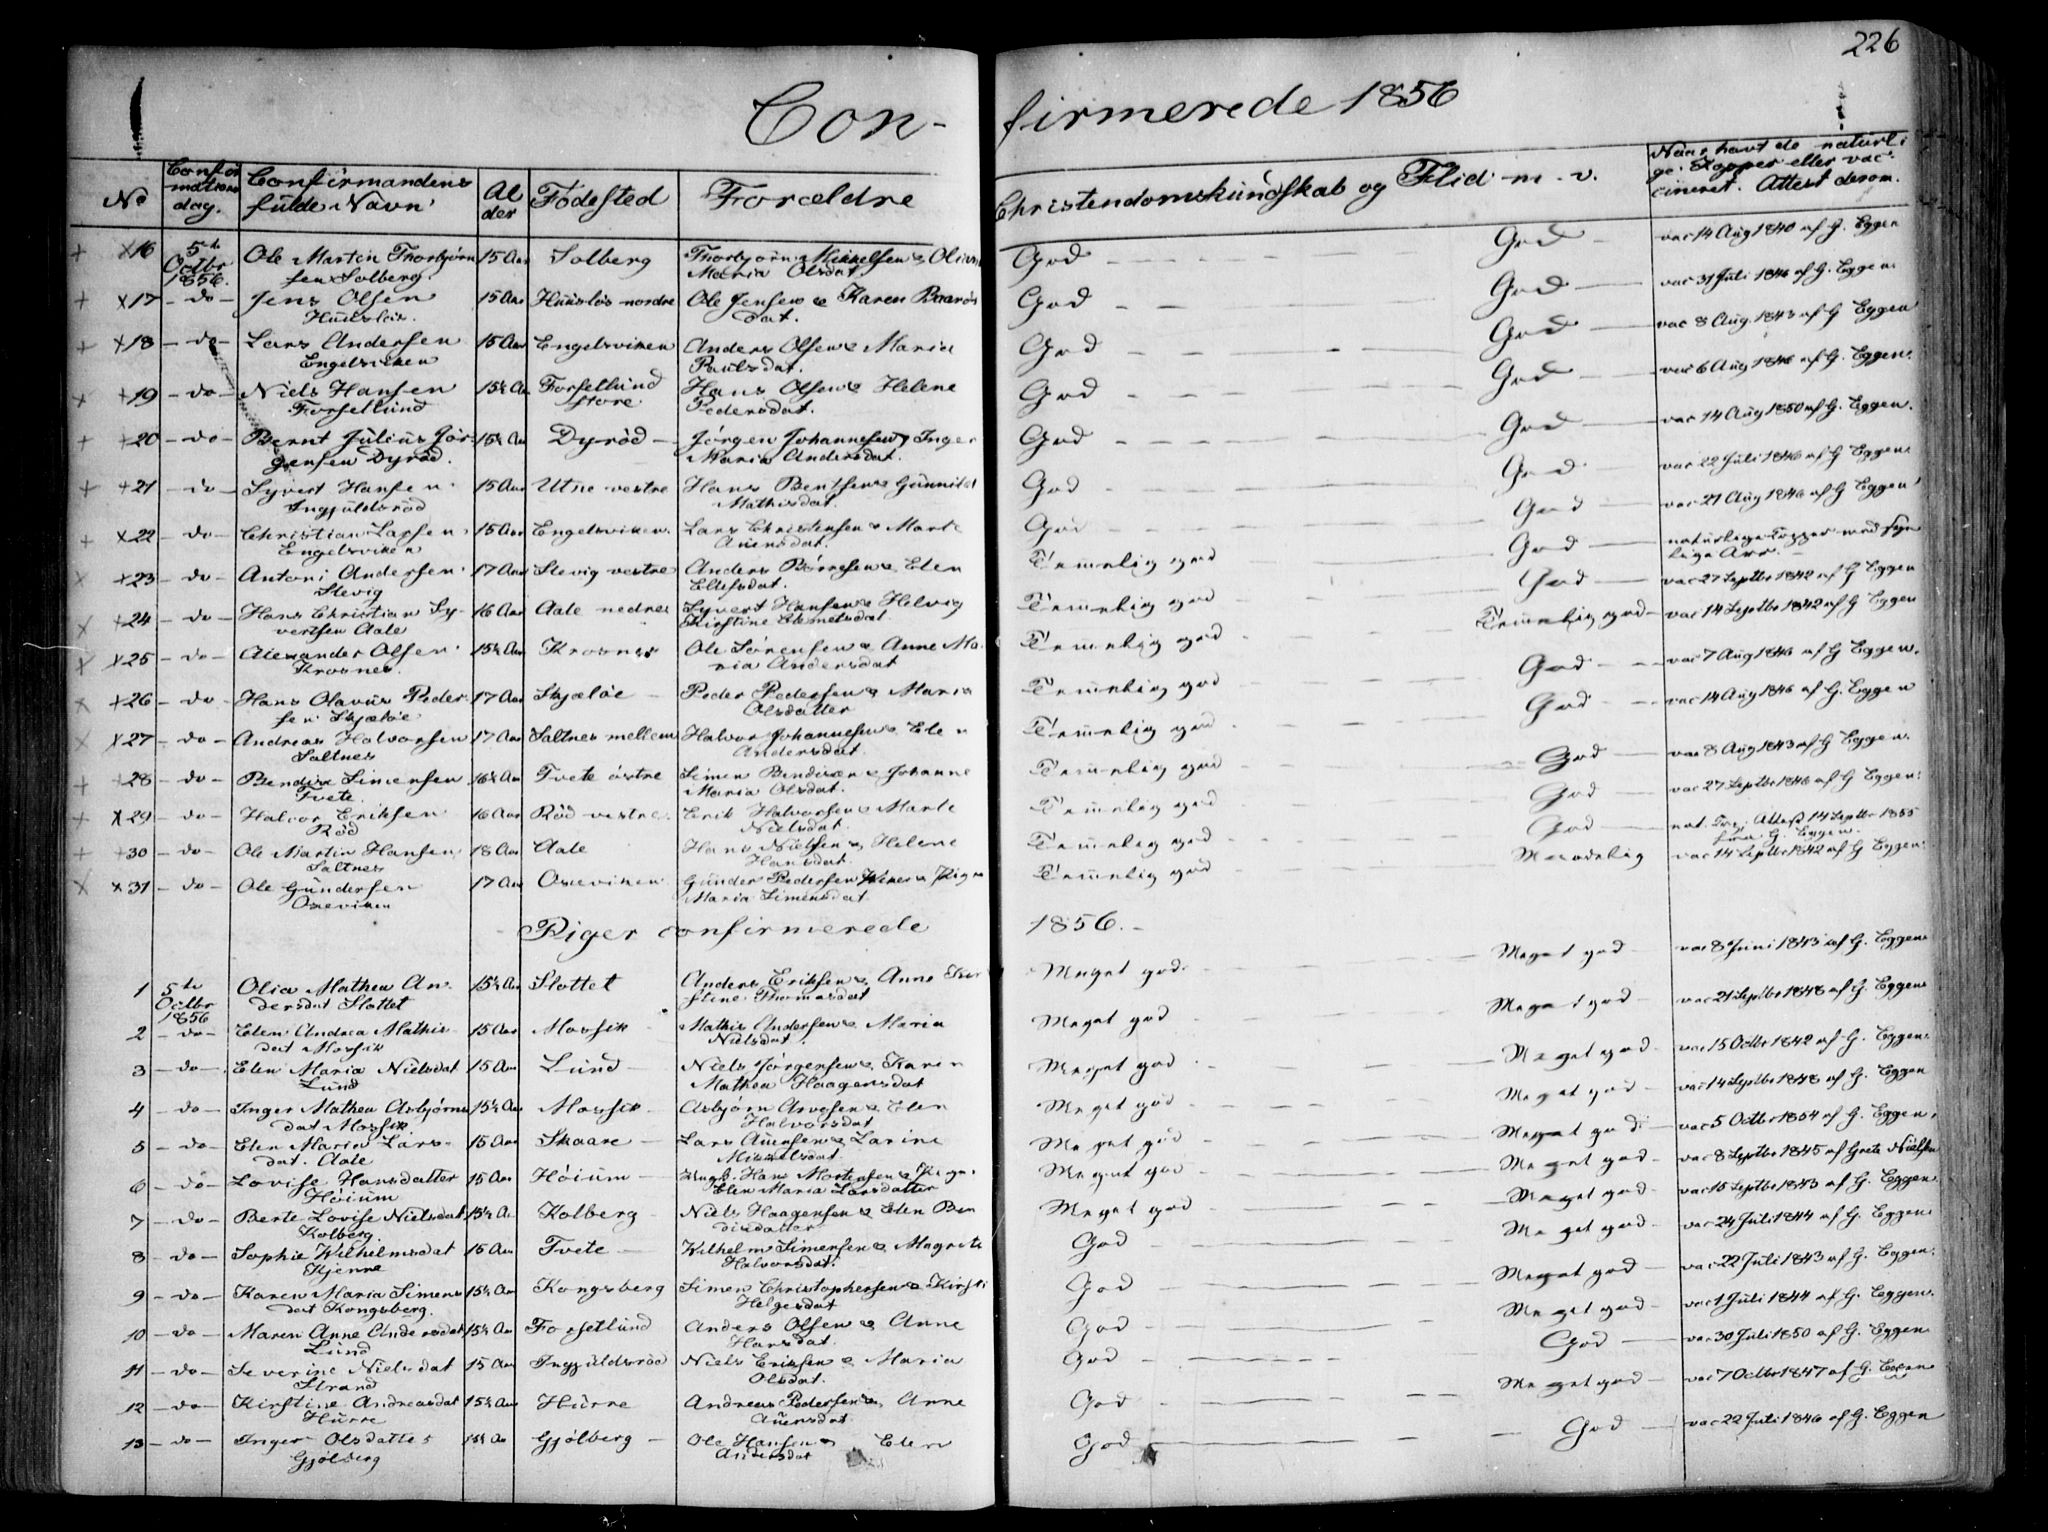 226
Con- firmerede 1856
No Confirmationsdag. Confirmandens fulde Navn Alder Fødested Forældre Christendomskundskab og Flid m. v. Naar havt de naturlige Kopper eller vaccineret. Attest derom.
16 5te Octbr 1856. Ole Martin Thorbjørnsen Solberg. 15 Aar Solberg Thorbjørn Mikkelsen & Oliana Maria Olsdat. God God vac 14 Aug 1840 af G. Eggen
17 do Jens Olsen Huuslöi 15 Aar Huuslös nordre Ole Jensen & Karen Baardsdat. God God vac 31 Juli 1846 af G. Eggen
18 do Lars Andersen Engelsviken 15 Aar Engelsviken Anders Olsen & Maria Paulsdat. God God vac 8 Aug 1843 af G Eggen
19 do Niels Hansen Forsetlund 15½ Aar Forsetlund store Hans Olsen & Helene Pedersdat. God God vac 6 Aug 1846 af G. Eggen.
20 do Bernt Julius Jörgensen Dyröd. 15½ Aar Dyröd Jörgen Johannesen & Inger Maria Andersdat. God God vac 14 Aug 1850 af G. Eggen.
21 do Syvert Hansen Ingjuldsröd 15 Aar Utne vestre Hans Bentsen & Gunnild Mathisdat. God God vac 22 Juli 1846 af G Eggen.
22 do Christian Larsen Engelsviken 15 Aar Engelsviken. Lars Christensen & Marte Auensdat. God God vac 21 Aug 1846 af G Eggen
23 do Antoni Andersen Slevig 17 Aar Slevig vestre Anders Börresen & Elen Ellefsdat. Temmelig god God naturlige Kopper med synlige Arr.
24 do Hans Christian Syvertsen Aale 16 Aar Aale nedre Syvert Hansen & Helvig Kirstine Clemetsdat. Temmelig god God vac 27 Septbr 1842 af G Eggen
25 do Alexander Olsen Krosnes. 15½ Aar Krosnes Ole Sörensen & Anne Maria Andersdat Temmelig god Temmelig god vac 14 Septbr 1842 af G Eggen
26 do Hans Olavus Pedersen Skjælöe 17 Aar Skjælöe Peder Pedersen & Maria Olsdatter Temmelig god God vac 7 Aug 1846 af G Eggen.
27 do Andreas Halvorsen Saltnes 17 Aar Saltnes mellem Halvor Johannesen & Elen Andersdat. Temmelig god God vac 14 Aug 1846 af G. Eggen
28 do Bendix Simensen Tvete. 16½ Aar Tvete östre Simen Bendixen & Johanne Maria Olsdat. Temmelig god God vac 8 Aug 1843 af G Eggen.
29 do Halvor Eriksen Röd 16 Aar Röd vestre Erik Halvorsen & Marte Nielsdat. Temmelig god God vac 27 Septbr 1846 af G. Eggen.
30 do Ole Martin Hansen Saltnes 18 Aar Aale Hans Nielsen & Helene Hansdat. Temmelig god God nat. Attest 14 Septbr 1855 fra G. Eggen.
31 do Ole Gundersen Oxeviken 17 Aar Oxeviken Gunder Pedersen & Pige Maria Simensdat. Temmelig god Maadelig vac 14 Septbr 1842 af G. Eggen.
Piger confirmerede 1856.
1 5te Octbr 1856 Olia Mathea Andersdat Slottet 15½ Aar Slottet Anders Eriksen & Anne Kirstine Thomasdat Meget god Meget god vac 8 Juni 1843 af G. Eggen
2 do Elen Andrea Mathisdat Mossik 15 Aar Mossik Mathis Andersen & Maria Nielsdat. Meget god Meget god vac 21 Septbr 1848 af G. Eggen
3 do Elen Maria Nielsdat Lund 15 Aar Lund Niels Jörgensen & Karen Mathea Haagensdat Meget god Meget god vac 15 Octbr 1842 af G. Eggen.
4 do Inger Mathea Asbjørnsdat Mossik 15½ Aar Mossik Asbjørn Arvesen & Elen Halvorsdat Meget god Meget god vac 14 Septbr 1848 af G. Eggen
5 do Elen Maria Larsdat. Aale 15 Aar Skaare Lars Auensen & Larine Mikkelsdat. Meget god Meget god vac 5 Octbr 1854 af G. Eggen.
6 do Lovise Hansdatter Höium 15 Aar Höium Ungk. Hans Mortensen & Pige Elen Maria Larsdatter Meget god Meget god vac 8 Septbr 1845 af Grete Nielsen
7 do Berte Lovise Nielsdat Kolberg. 15½ Aar Kolberg Niels Haagensen & Elen Bendixdatter Meget god Meget god vac 15 Septbr 1843 af G. Eggen.
8 do Sophie Wilhelmsdat Kjenne 15 Aar Tvete Wilhelm Simensen & Magrete Halvorsdat. God Meget god vac 24 Juli 1844 af G. Eggen.
9 do Karen Maria Simensdat Kongsberg. 15½ Aar Kongsberg Simen Christophersen & Kirsti Helgesdat God Meget god vac 22 Juli 1843 af G. Eggen.
10 do Maren Anne Andersdat Lund 15½ Aar Forsetlund Anders Olsen & Anne Hansdat. God Meget god vac 1 Juli 1844 af G. Eggen.
11 do Severine Nielsdat Strand 15 Aar Ingjuldsröd Niels Eriksen & Maria Olsdat. God God vac 30 Juli 1850 af G. Eggen
12 do Kirstine Andreasdat Hurre 15½ Aar Hurre Andreas Pedersen & Anne Auensdat God Meget god vac 7 Octbr 1847 af G. Eggen
13 do Inger Olsdatter Gjölberg 15½ Aar Gjölberg Ole Hansen & Elen Andersdat God God vac 22 Juli 1846 af G. Eggen